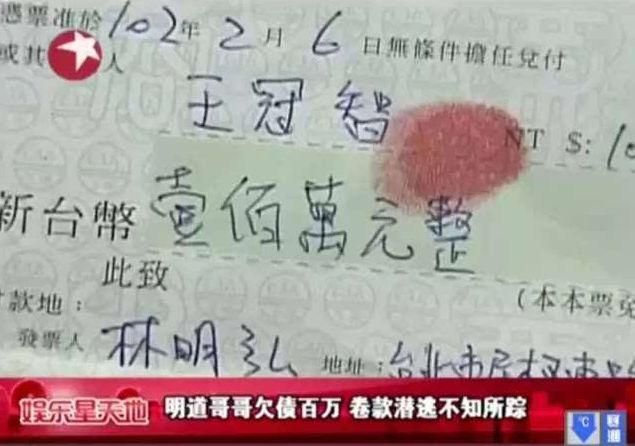 憑票准於102年2月6日無條件擔任兌付
或其 人
王冠智
NT $:
新台幣壹佰萬元整
此致
款地：
(本本票免
發票人 林明弘 地址:台北市
娱乐星天地 明道哥哥欠债百万 卷款潜逃不知所踪
℃